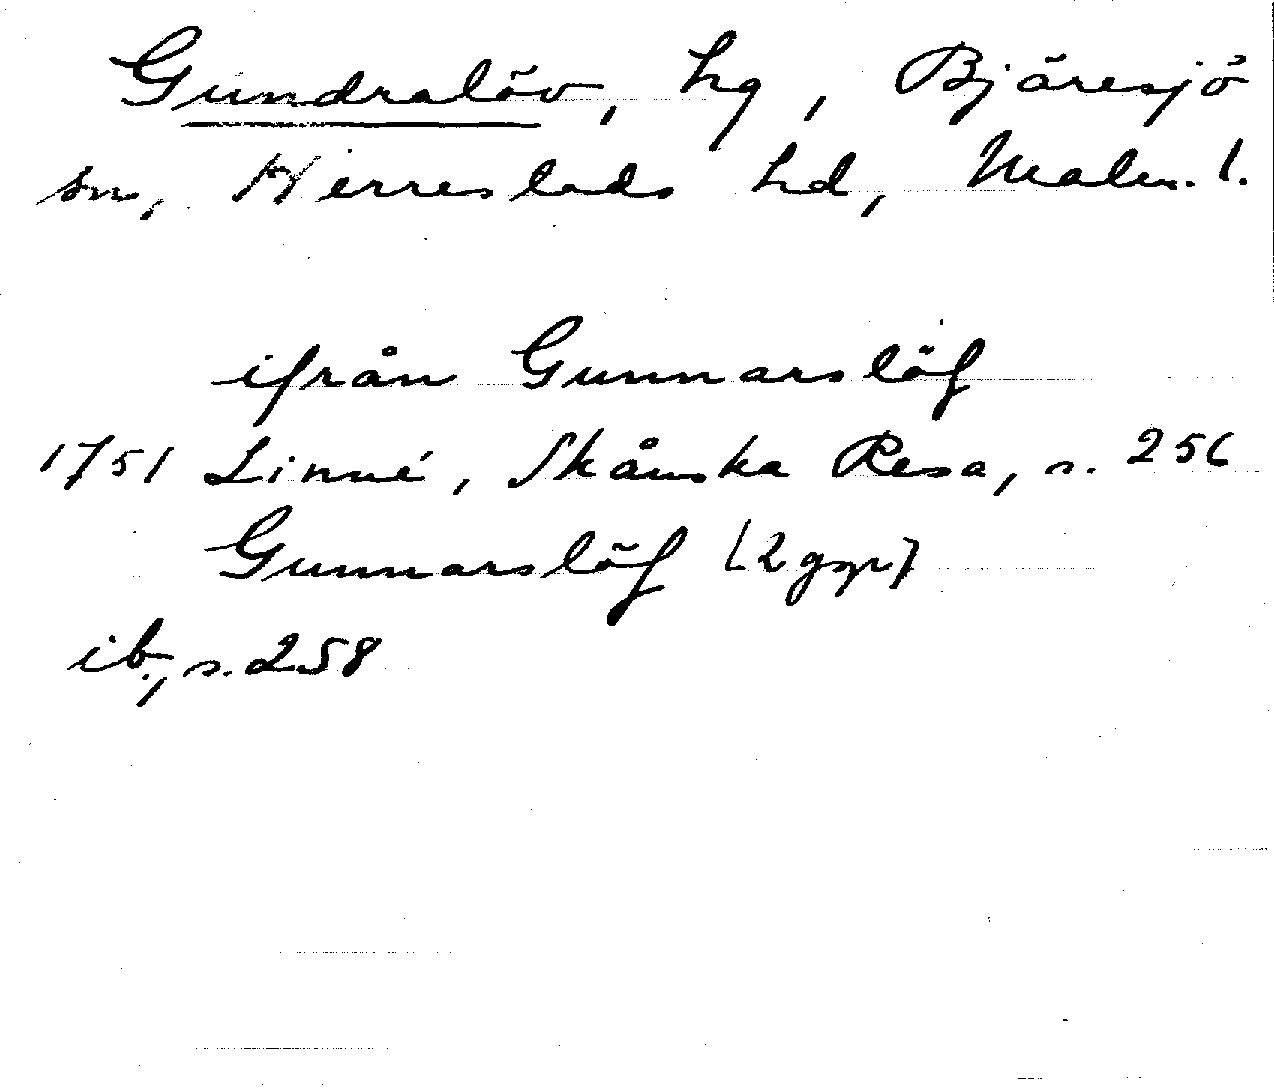 Gundralöv, hg, Bjäresjö
sn, Herrestads hd, Malm. l.
ifrån Gunnarslöf
1751 Linné, Skånska Resa, s. 256
Gunnarslöf (2 ggr)
ib., s. 258